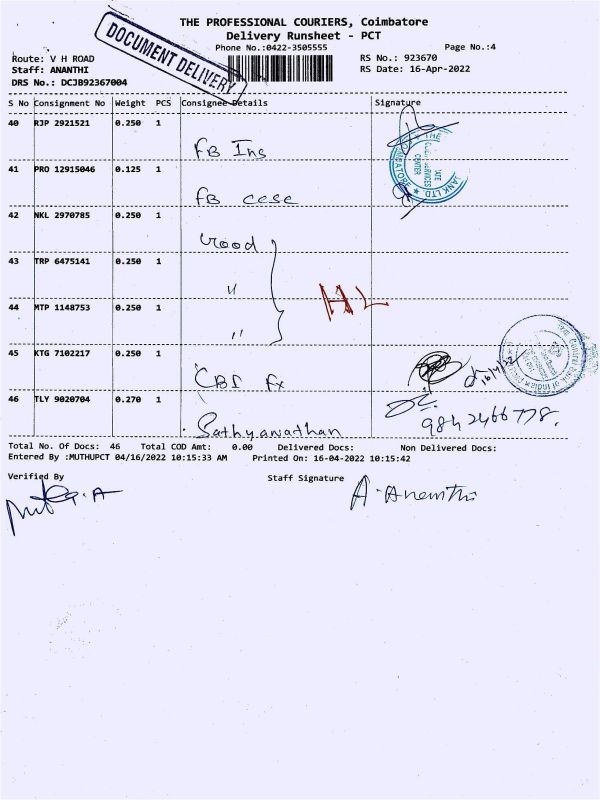 THE PROFESSIONAL COURIERS, Coimbatore
Delivery Runsheet - PCT
DOCUMENT DELIVERY
Phone No.:0422-3505555
Page No.:4
Route: V H ROAD
RS No.: 923670
Staff: ANANTHI
RS Date: 16-Apr-2022
DRS No.: DCJB92367004
S No Consignment No Weight PCS Consignee Details Signature
40 RJP 2921521 0.250 1
FB Ins
41 PRO 12915046 0.125 1
FB
42 NKL 2970785 0.250 1
43 TRP 6475141 0.250 1
"
HL
44 MTP 1148753 0.250 1
"
45 KTG 7102217 0.250 1
16/4/22
46 TLY 9020704 0.270 1
Sathyanathan
9842466778.
Total No. Of Docs: 46 Total COD Amt: 0.00 Delivered Docs: Non Delivered Docs:
Entered By :MUTHUPCT 04/16/2022 10:15:33 AM Printed On: 16-04-2022 10:15:42
Verified By Staff Signature
A. Ananthi